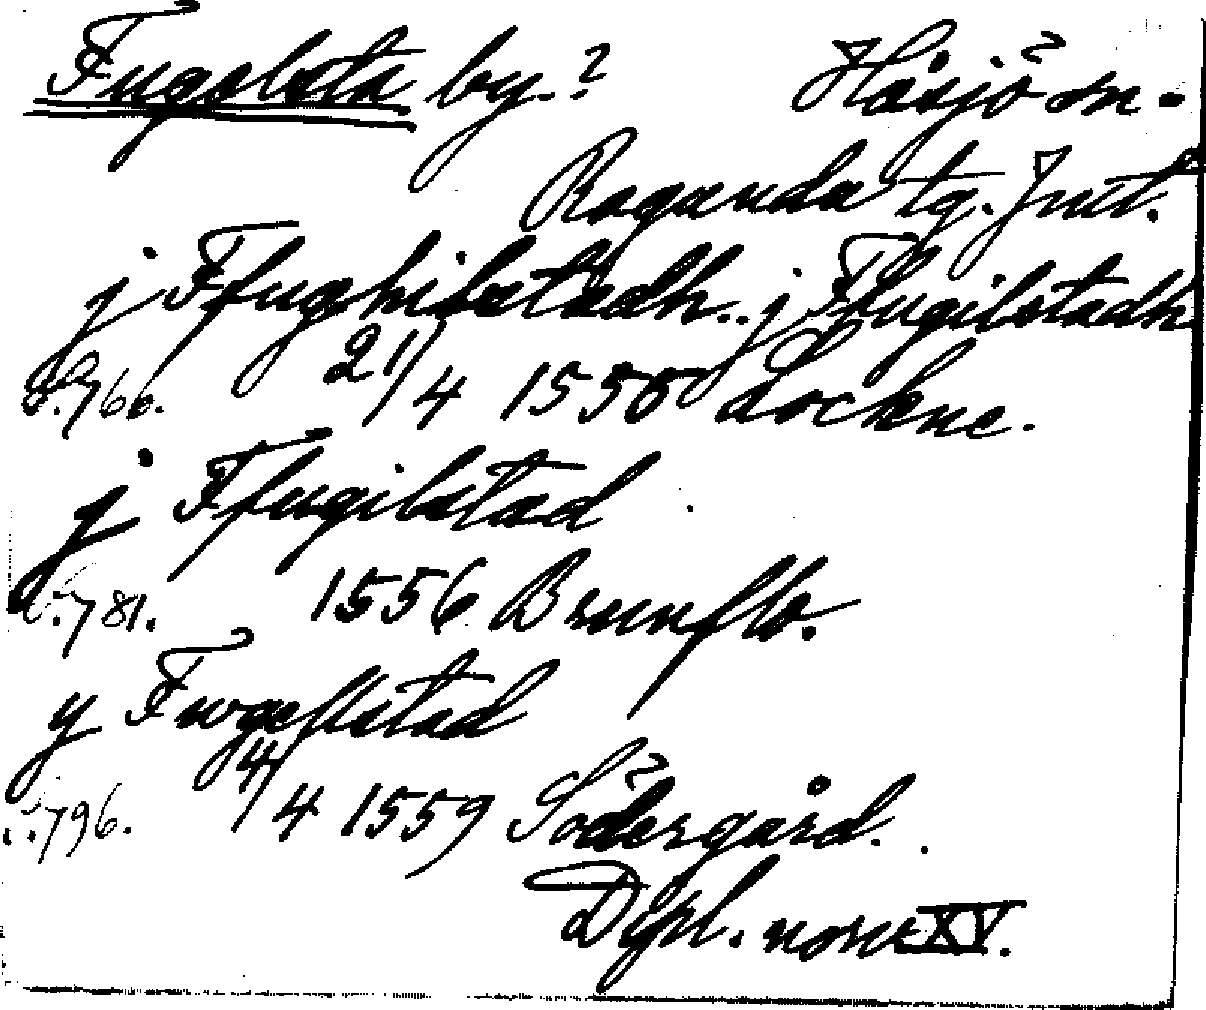 Fugelsta by.? Håsjö sn.
Ragunda tg. Jmtl.
j Ffughilstadh.. j Ffugilstadh
s. 766. 21/4 1550 Lockne.
j Ffugilstad
s. 781. 1556 Brunflo.
y Fwgellstad
s. 796. 4/4 1559 Södergård.
Dipl. norv. XV.